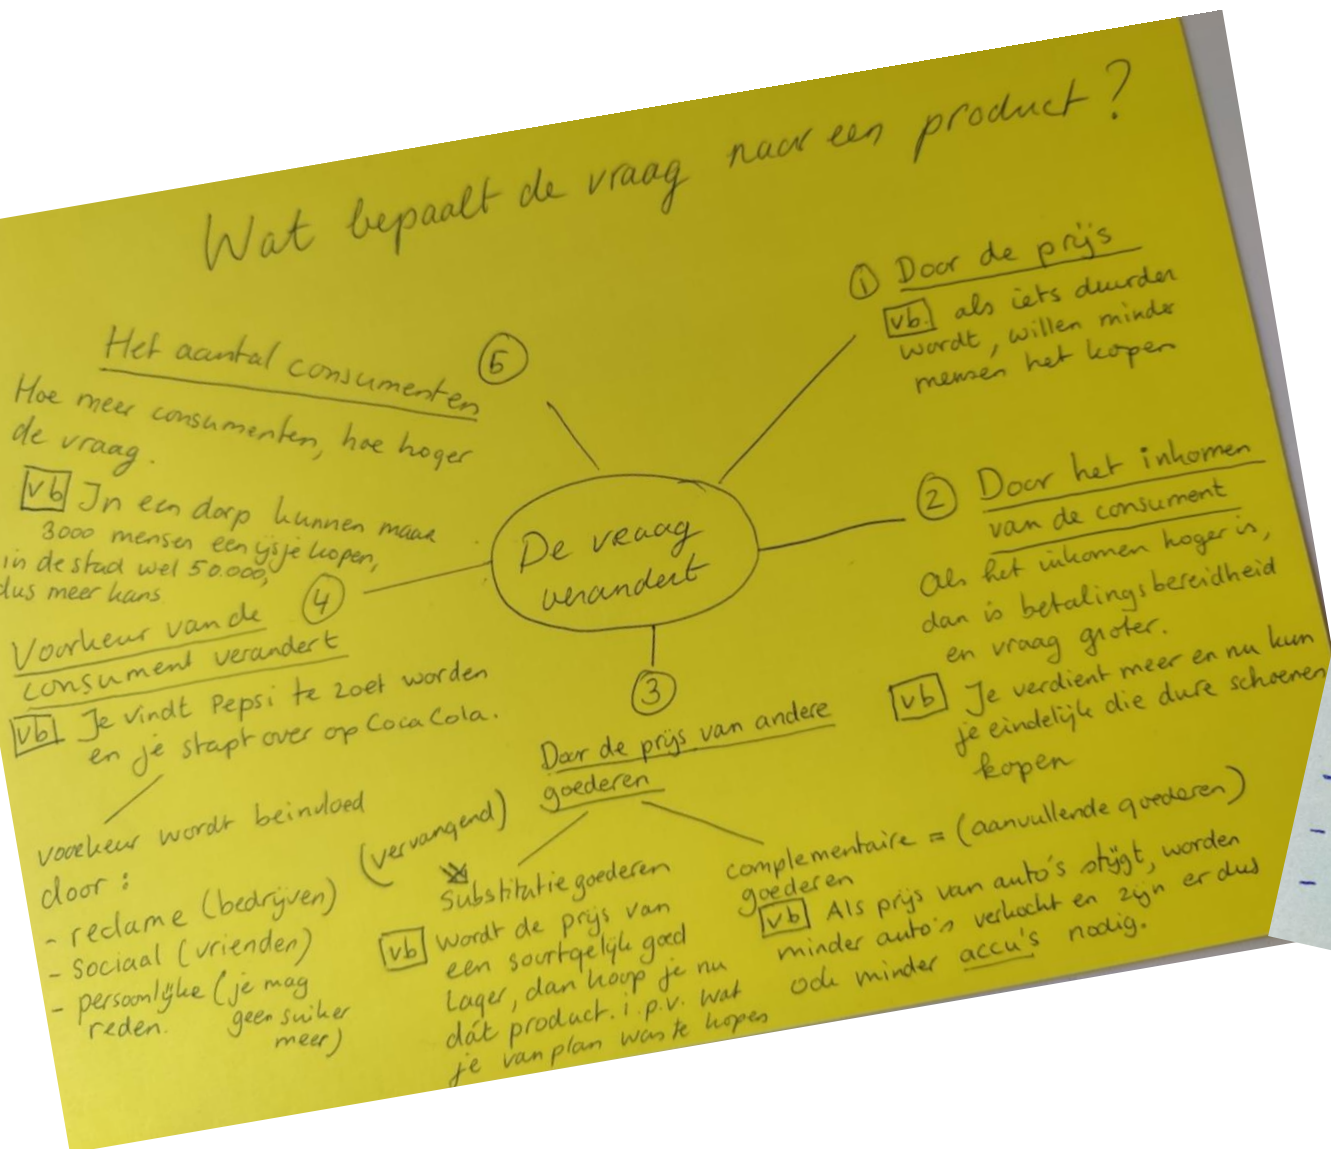 Wat bepaalt de vraag naar een product?
① Door de prijs
vb. als iets duurder
wordt, willen minder
mensen het kopen
② Door het inkomen
van de consument
Als het inkomen hoger is,
dan is betalingsbereidheid
en vraag groter.
vb Je verdient meer en nu kun
je eindelijk die dure schoenen
kopen
De vraag
verandert
③
Door de prijs van andere
goederen
(vervangend)
Substitutiegoederen
vb Wordt de prijs van
een soortgelijk goed
lager, dan koop je nu
dát product. i.p.v. wat
je van plan was te kopen
complementaire = (aanvullende goederen)
goederen
vb Als prijs van auto's stijgt, worden
minder auto's verkocht en zijn er dus
ook minder accu's nodig.
④
Voorkeur van de
consument verandert
vb Je vindt Pepsi te zoet worden
en je stapt over op Coca Cola.
voorkeur wordt beinvloed
door:
- reclame (bedrijven)
- sociaal (vrienden)
- persoonlijke (je mag
reden. geen suiker
meer)
⑤
Het aantal consumenten
Hoe meer consumenten, hoe hoger
de vraag.
vb In een dorp kunnen maar
3000 mensen een ijsje kopen,
in de stad wel 50.000,
dus meer kans